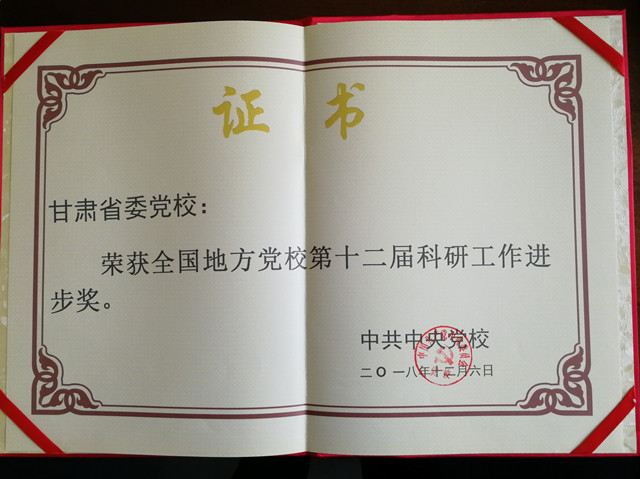 证 书
甘肃省委党校：
荣获全国地方党校第十二届科研工作进
步奖。
中共中央党校
二〇一八年十二月六日